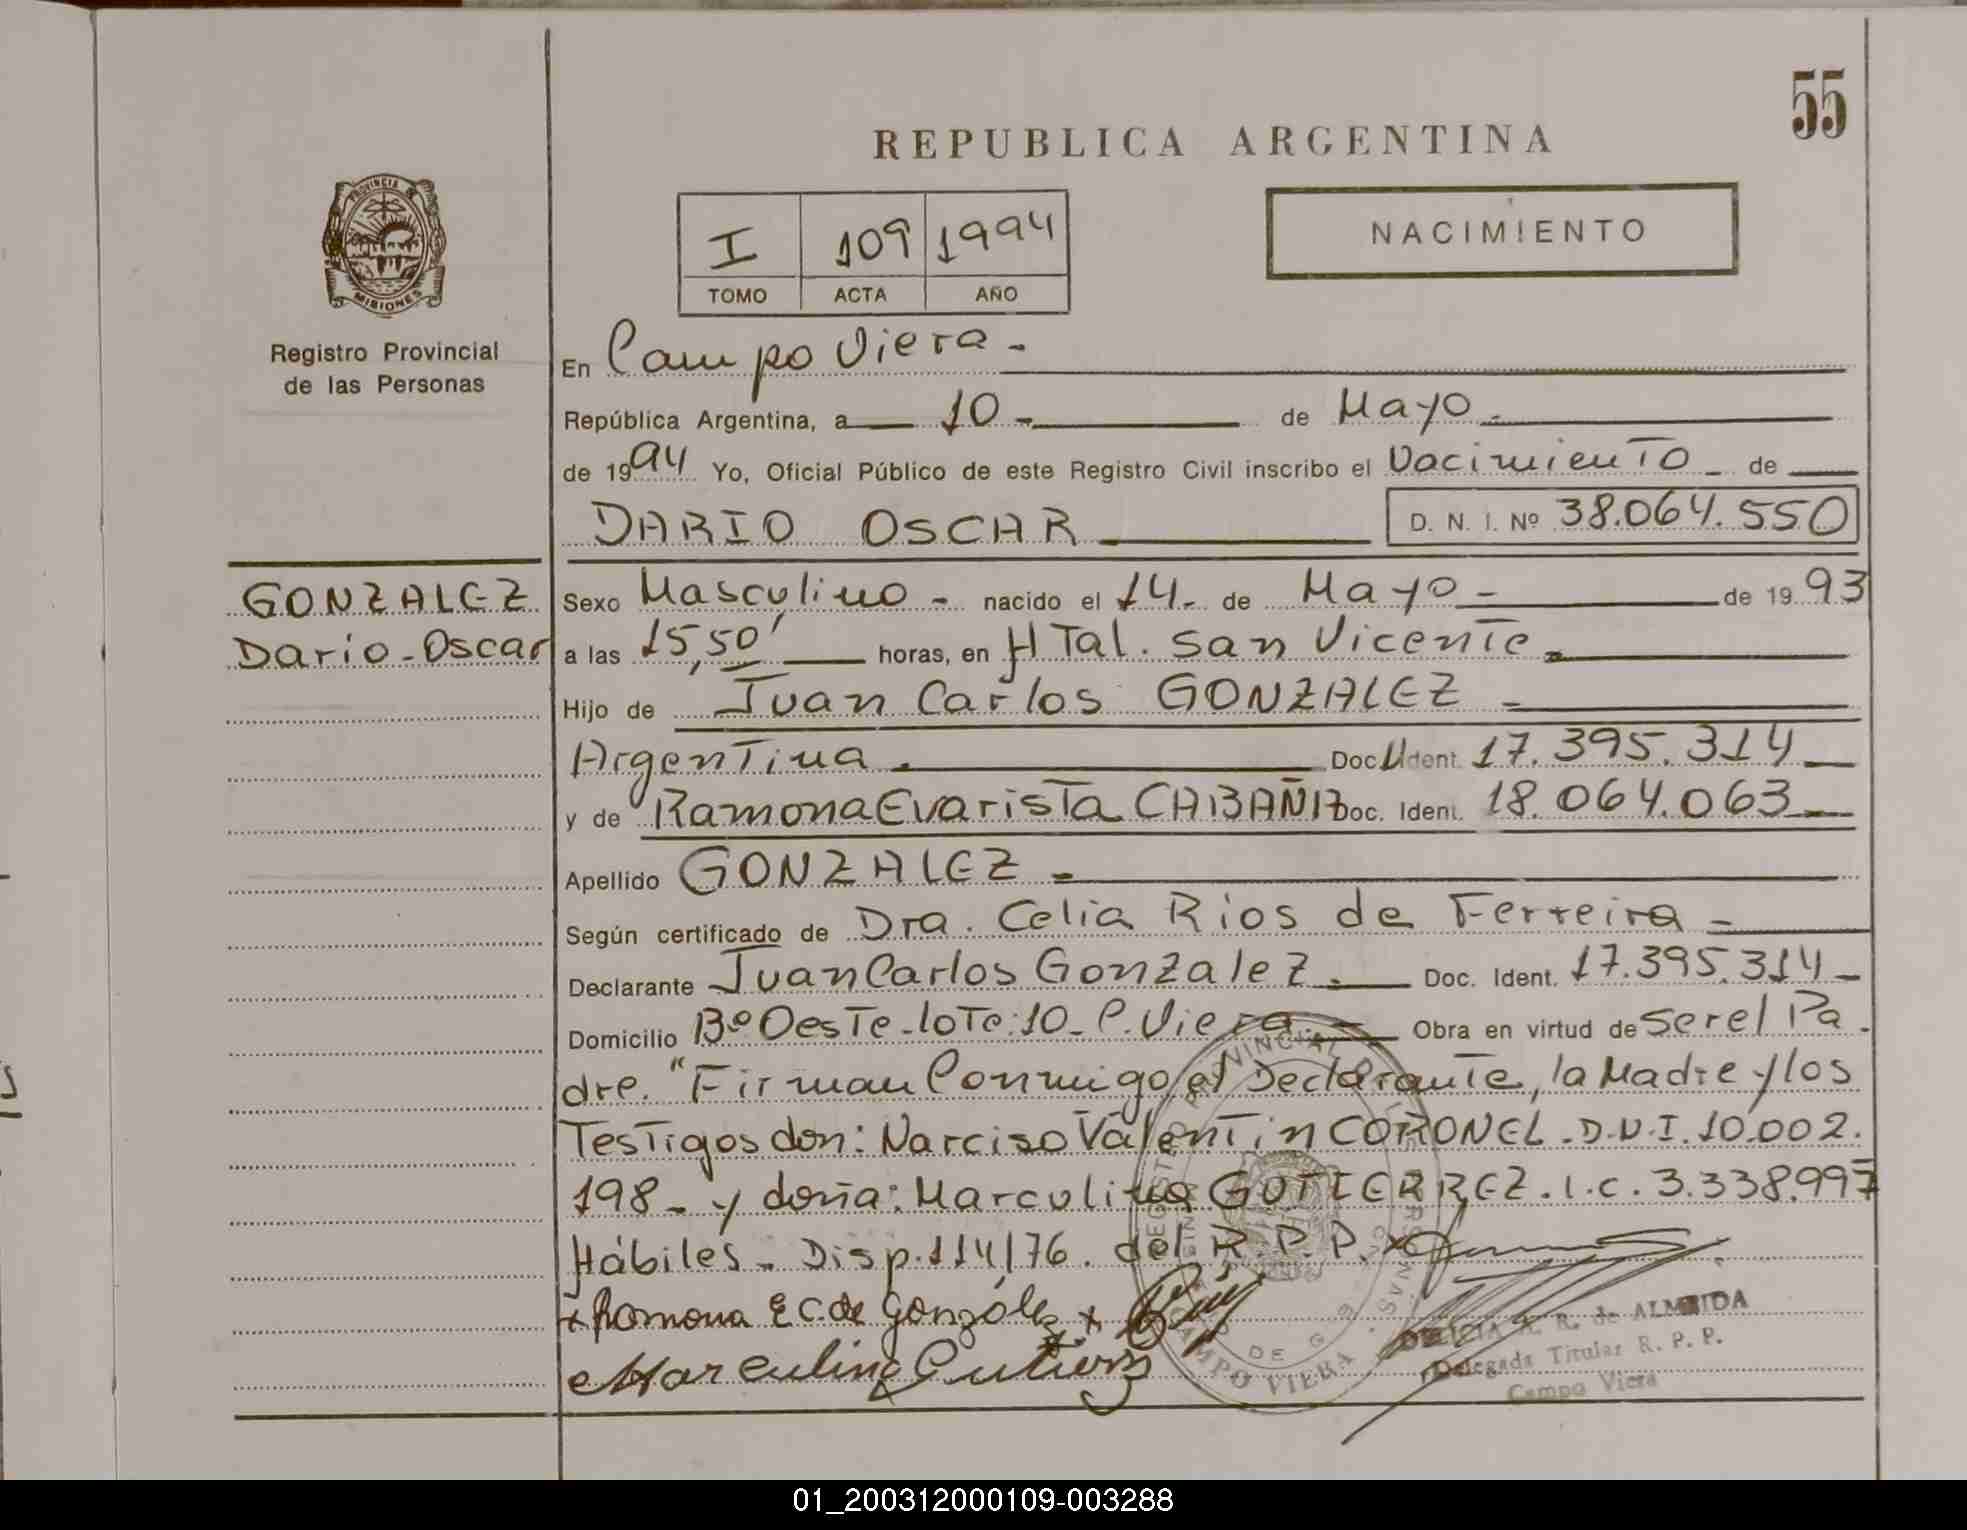 55
REPUBLICA ARGENTINA
I 109 1994
TOMO ACTA AÑO
NACIMIENTO
PROVINCIA DE
MISIONES
Registro Provincial
de las Personas
GONZALEZ
Dario-Oscar
En Campo Viera.-
República Argentina, a 10- de Mayo-
de 1994 Yo, Oficial Público de este Registro Civil inscribo el Nacimiento- de
DARIO OSCAR D. N. I. Nº 38.064.550
Sexo Masculino- nacido el 14- de Mayo- de 1993
a las 15,50' horas, en HTal. San Vicente-
Hijo de Juan Carlos GONZALEZ-
Argentina. Doc. Ident. 17.395.314
y de Ramona Evarista CABAÑA Doc. Ident. 18.064.063
Apellido GONZALEZ-
Según certificado de Dra. Celia Rios de Ferreira-
Declarante Juan Carlos Gonzalez. Doc. Ident. 17.395.314-
Domicilio Bº Oeste-lote:10-C.Viera.- Obra en virtud de Ser el Pa-
dre. "Firman Conmigo el Declarante, la Madre y los
Testigos don: Narciso Valentin CORONEL.D.N.I.10.002.
198- y doña: Marculina GUTIERREZ.L.C.3.338.997
Hábiles- Disp.114/76. del R.P.P.
x Ramona E C.de Gonzólez x
Marculina Gutierrez
DELICIA A. R. de ALMEIDA
Delegada Titular R. P. P.
Campo Viera
CAMPO VIERA
01_200312000109-003288